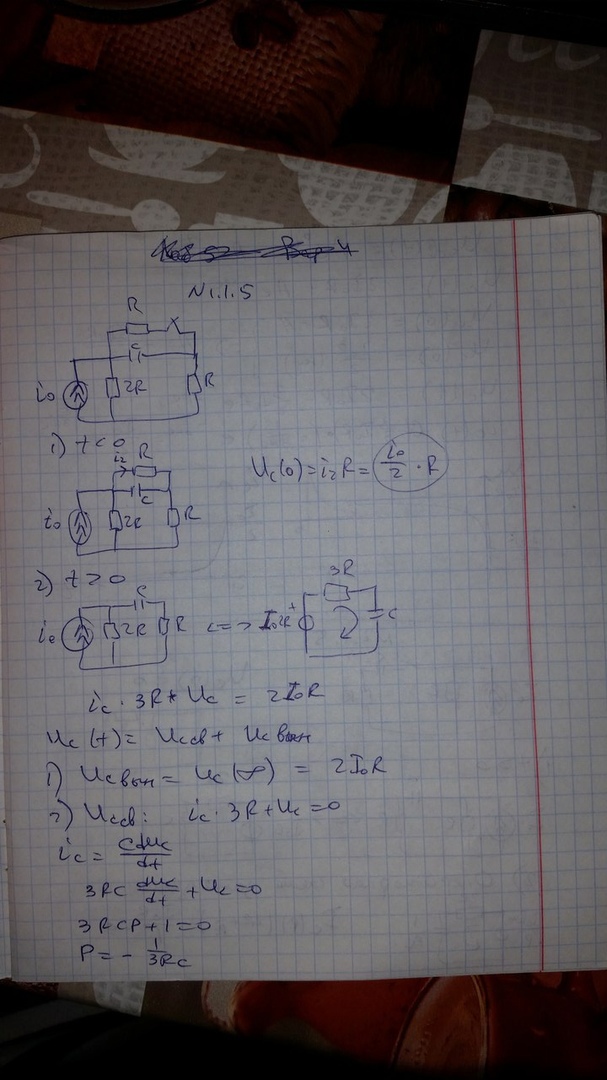 N1.1.5
R
C
i₀ 2R R
1) t < 0
i₂ R
C
i₀ 2R R
Uc(0) = i₂R = i₀/2 · R
2) t ≥ 0
C
i₀ 2R R <=> I₀2R + 3R C
ic · 3R + Uc = 2I₀R
Uc(t) = Uссв + Uсвын
1) Uсвын = Uc(∞) = 2I₀R
2) Uссв: ic · 3R + Uc = 0
ic = CdUc/dt
3RC dUc/dt + Uc = 0
3RCP + 1 = 0
P = - 1/3RC